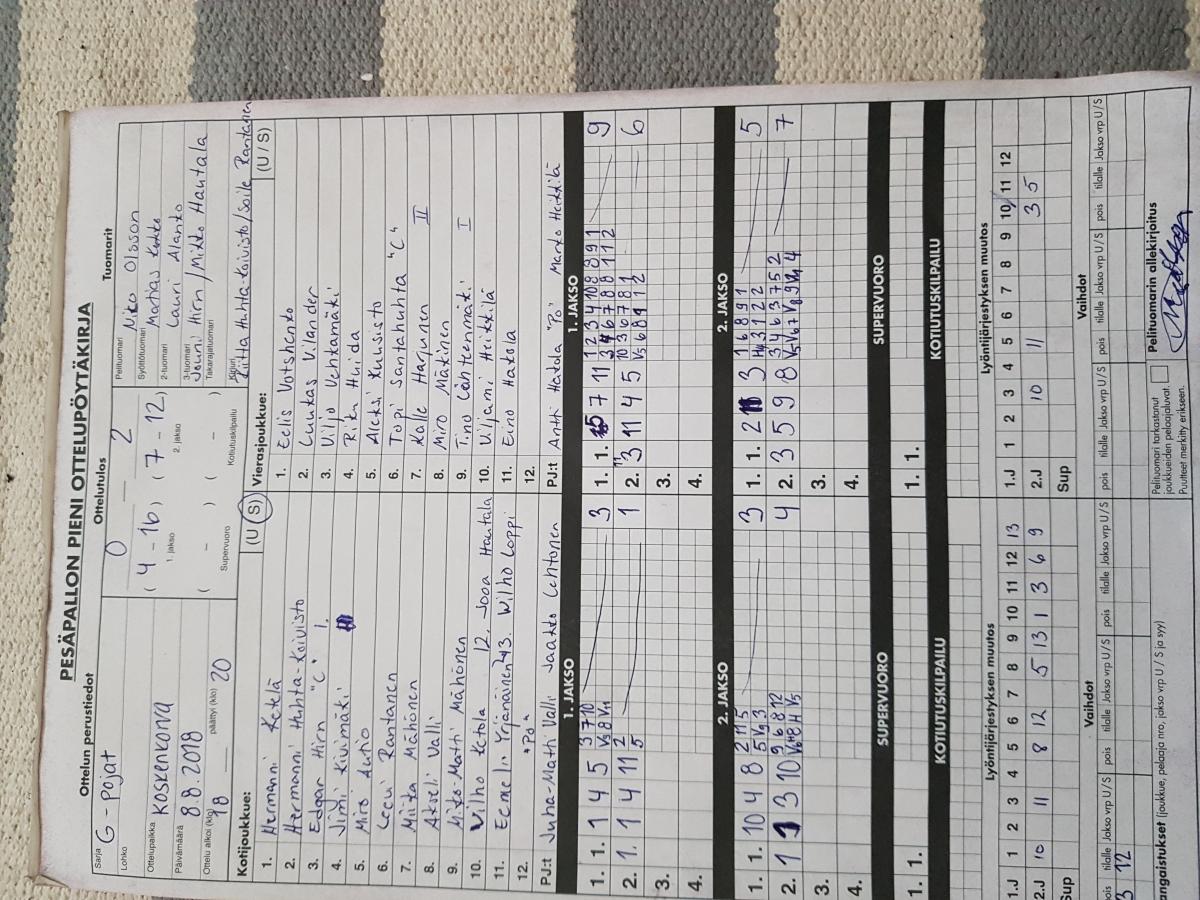 PESÄPALLON PIENI OTTELUPÖYTÄKIRJA
Ottelun perustiedot
Ottelutulos
Tuomarit
Sarja G - Pojat
Lohko
Ottelupaikka KOSKENKORVA
Päivämäärä 8.8.2018
Ottelu alkoi (klo) 18 päättyi (klo) 20
0 2
( 4 - 16 ) ( 7 - 12 )
1. jakso 2. jakso
( - ) ( - )
Supervuoro Kotiutuskilpailu
Pelituomari Niko Olsson
Syöttötuomari
2-tuomari Lauri Alanko
3-tuomari Jouni Hirn / Mikko Hautala
Takarajatuomari
Kirjuri Riitta Huhta-Koivisto/Soile Rantanen
Kotijoukkue: (U / S)
1. Hermanni Ketelä
2. Hermanni Huhta-Koivisto
3. Edgar Hirn "C" I.
4. Jimi Kivimäki
5. Miro Autio
6. Leevi Rantanen
7. Miika Mähönen
8. Akseli Valli
9. Niko-Matti Mähönen
10. Vilho Ketala 12. Jooa Hautala
11. Eemeli Yrjänäinen 13. Wilho Loppi
12. "Po"
PJ:t Juha-Matti Valli Jaakko Lehtonen
Vierasjoukkue: (U / S)
1. Eelis Votshenko
2. Luukas Vilander
3. Viljo Uhtamäki
4. Riku Huida
5. Aleksi Kuusisto
6. Topi Santahuhta "C"
7. Kalle Harjunen II
8. Miro Mäkinen
9. Tino Lähteenmäki I
10. Viljami Heikkilä
11. Eino Hakola
12.
PJ:t Antti Hakala "Po" Marko Heikkilä
1. JAKSO
1. 1. 1 4 5 3 7 10 3
2. 1. 1 4 11 2 5 1
3.
4.
2. JAKSO
1. 1. 10 4 8 3
2. 1 3 10 4
3.
4.
SUPERVUORO
1. 1.
KOTIUTUSKILPAILU
1. JAKSO
1. 1. 7 11 1 2 3 4 10 8 8 9 1 9
2. 3 11 4 5 10 3 6 7 8 1 6
3.
4.
2. JAKSO
1. 1. 2 3 1 6 8 9 1 5
2. 3 5 9 8 3 4 6 3 7 5 2 7
3.
4.
SUPERVUORO
1. 1.
KOTIUTUSKILPAILU
Lyöntijärjestyksen muutos
1.J 1 2 3 4 5 6 7 8 9 10 11 12 13
2.J 10 11 8 12 5 13 1 3 6 9
Sup
Lyöntijärjestyksen muutos
1.J 1 2 3 4 5 6 7 8 9 10 11 12
2.J 10 11 3 5
Sup
Vaihdot
pois tilalle Jakso vrp U / S pois tilalle Jakso vrp U / S pois tilalle Jakso vrp U / S
3 12
Vaihdot
pois tilalle Jakso vrp U / S pois tilalle Jakso vrp U / S pois tilalle Jakso vrp U / S
angaistukset (joukkue, pelaaja nro, jakso vrp U / S ja syy)
Pelituomari tarkastanut
joukkueiden pelaajaluvat.
Puutteet merkitty erikseen.
Pelituomarin allekirjoitus